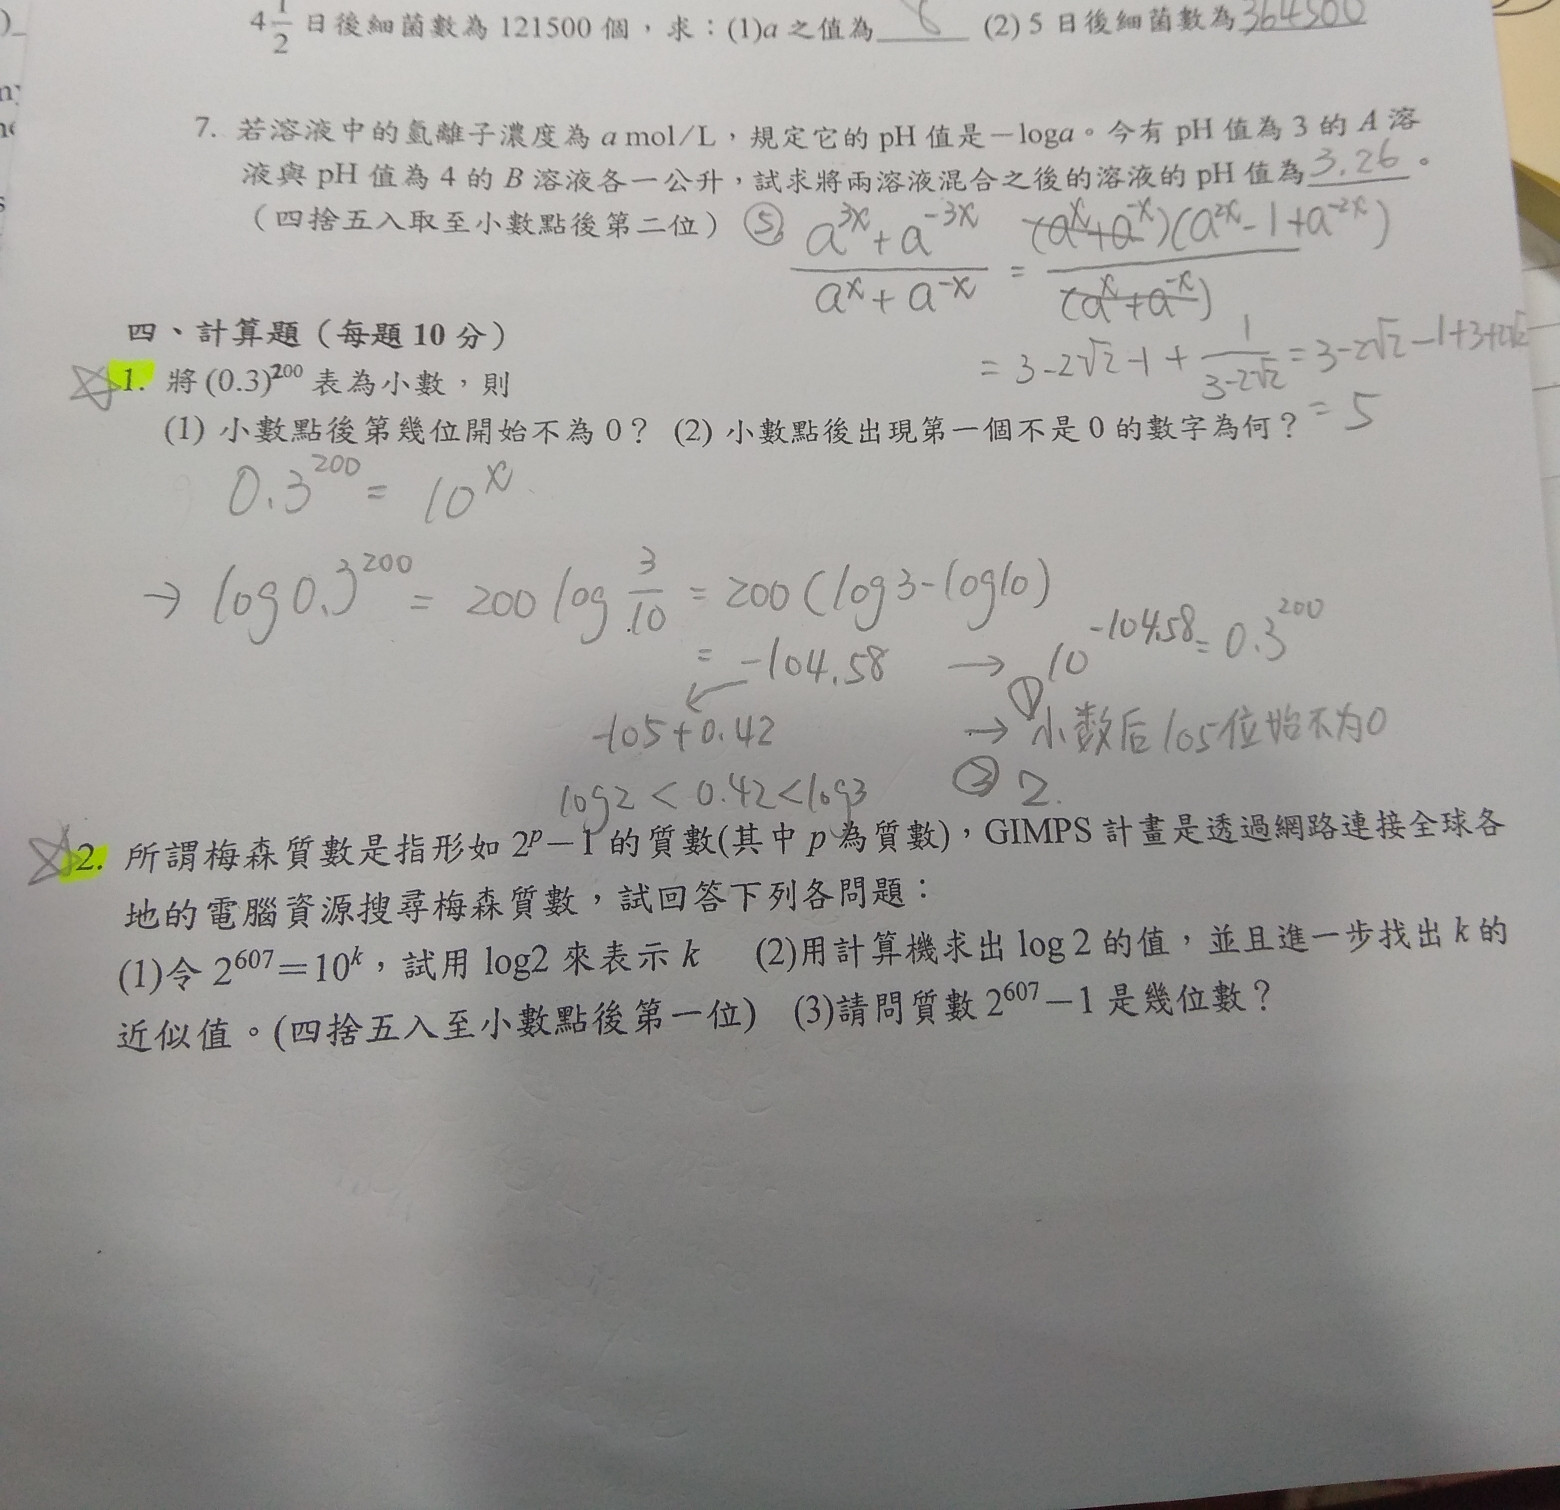 4 1/2 日後細菌數為 121500 個，求：(1)a 之值為 (2) 5 日後細菌數為 364500
7. 若溶液中的氫離子濃度為 a mol/L，規定它的 pH 值是－loga。今有 pH 值為 3 的 A 溶
液與 pH 值為 4 的 B 溶液各一公升，試求將兩溶液混合之後的溶液的 pH 值為 3.26 。
（四捨五入取至小數點後第二位）
⑤ (a^3x + a^-3x)/(a^x + a^-x) = (a^x+a^-x)(a^2x - 1 + a^-2x)/(a^x+a^-x)
= 3-2√2 -1 + 1/(3-2√2) = 3-2√2 -1+3+2√2
= 5
四、計算題（每題 10 分）
1. 將 (0.3)^200 表為小數，則
(1) 小數點後第幾位開始不為 0？ (2) 小數點後出現第一個不是 0 的數字為何？
0.3^200 = 10^x
→ log 0.3^200 = 200 log 3/10 = 200 (log3-log10)
= -104.58 → 10^-104.58 = 0.3^200
-105+0.42 → ① 小数后 105位始不为0
log2 < 0.42 < log3 ② 2.
2. 所謂梅森質數是指形如 2^p－1 的質數(其中 p 為質數)，GIMPS 計畫是透過網路連接全球各
地的電腦資源搜尋梅森質數，試回答下列各問題：
(1)令 2^607＝10^k，試用 log2 來表示 k (2)用計算機求出 log 2 的值，並且進一步找出 k 的
近似值。(四捨五入至小數點後第一位) (3)請問質數 2^607－1 是幾位數？